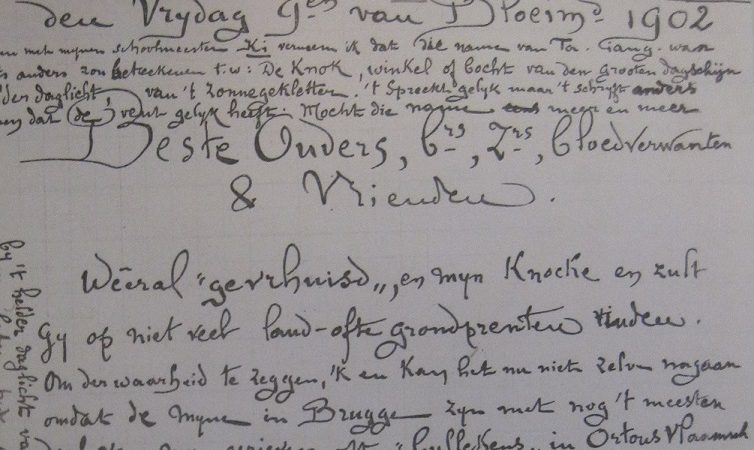 den Vrydag 9en van Bloeimd 1902
met mynen schoolmeester Ki vermeen ik dat die name van Ta. Gang. wan
anders zou beteekenen t.w: De Knok, winkel of bocht van den grooten dagschijn
daglicht, van 't zonnegekletter. 't Spreekt gelyk maar 't schryft anders
dat (de) vent gelyk heeft. Mocht die name meer en meer
Beste Ouders, brs, Zrs, bloedverwanten
& Vrienden.
Wêeral "gevrhuisd", en myn Knocke en zult
Gy op niet veel land-ofte grondprenten vinden.
Om der waarheid te zeggen, 'k en Kan het nu niet zelve nagaan
omdat de myne in Brugge zyn met nog 't meesten
in Ortous Vlaamsch
by 't helder daglicht va